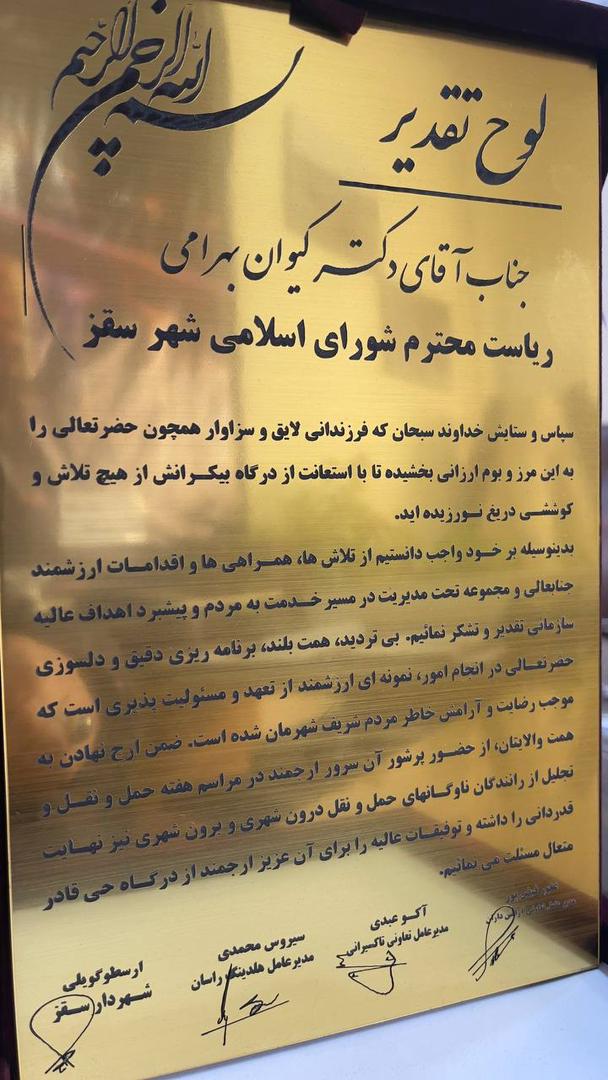 بسم الله الرحمن الرحیم
لوح تقدیر
جناب آقای دکتر کیوان بهرامی
ریاست محترم شورای اسلامی شهر سقز
سپاس و ستایش خداوند سبحان که فرزندانی لایق و سزاوار همچون حضرتعالی را
به این مرز و بوم ارزانی بخشیده تا با استعانت از درگاه بیکرانش از هیچ تلاش و
کوششی دریغ نورزیده اید.
بدینوسیله بر خود واجب دانستیم از تلاش ها، همراهی ها و اقدامات ارزشمند
جنابعالی و مجموعه تحت مدیریت در مسیر خدمت به مردم و پیشبرد اهداف عالیه
سازمانی تقدیر و تشکر نمائیم. بی تردید، همت بلند، برنامه ریزی دقیق و دلسوزی
حضرتعالی در انجام امور، نمونه ای ارزشمند از تعهد و مسئولیت پذیری است که
موجب رضایت و آرامش خاطر مردم شریف شهرمان شده است. ضمن ارج نهادن به
همت والایتان، از حضور پرشور آن سرور ارجمند در مراسم هفته حمل و نقل و
تجلیل از رانندگان ناوگانهای حمل و نقل درون شهری و برون شهری نیز نهایت
قدردانی را داشته و توفیقات عالیه را برای آن عزیز ارجمند از درگاه حی قادر
متعال مسئلت می نمائیم.
آکو عبدی
مدیرعامل تعاونی تاکسیرانی
سیروس محمدی
مدیرعامل هلدینگ راسان
ارسطو گویلی
شهردار سقز